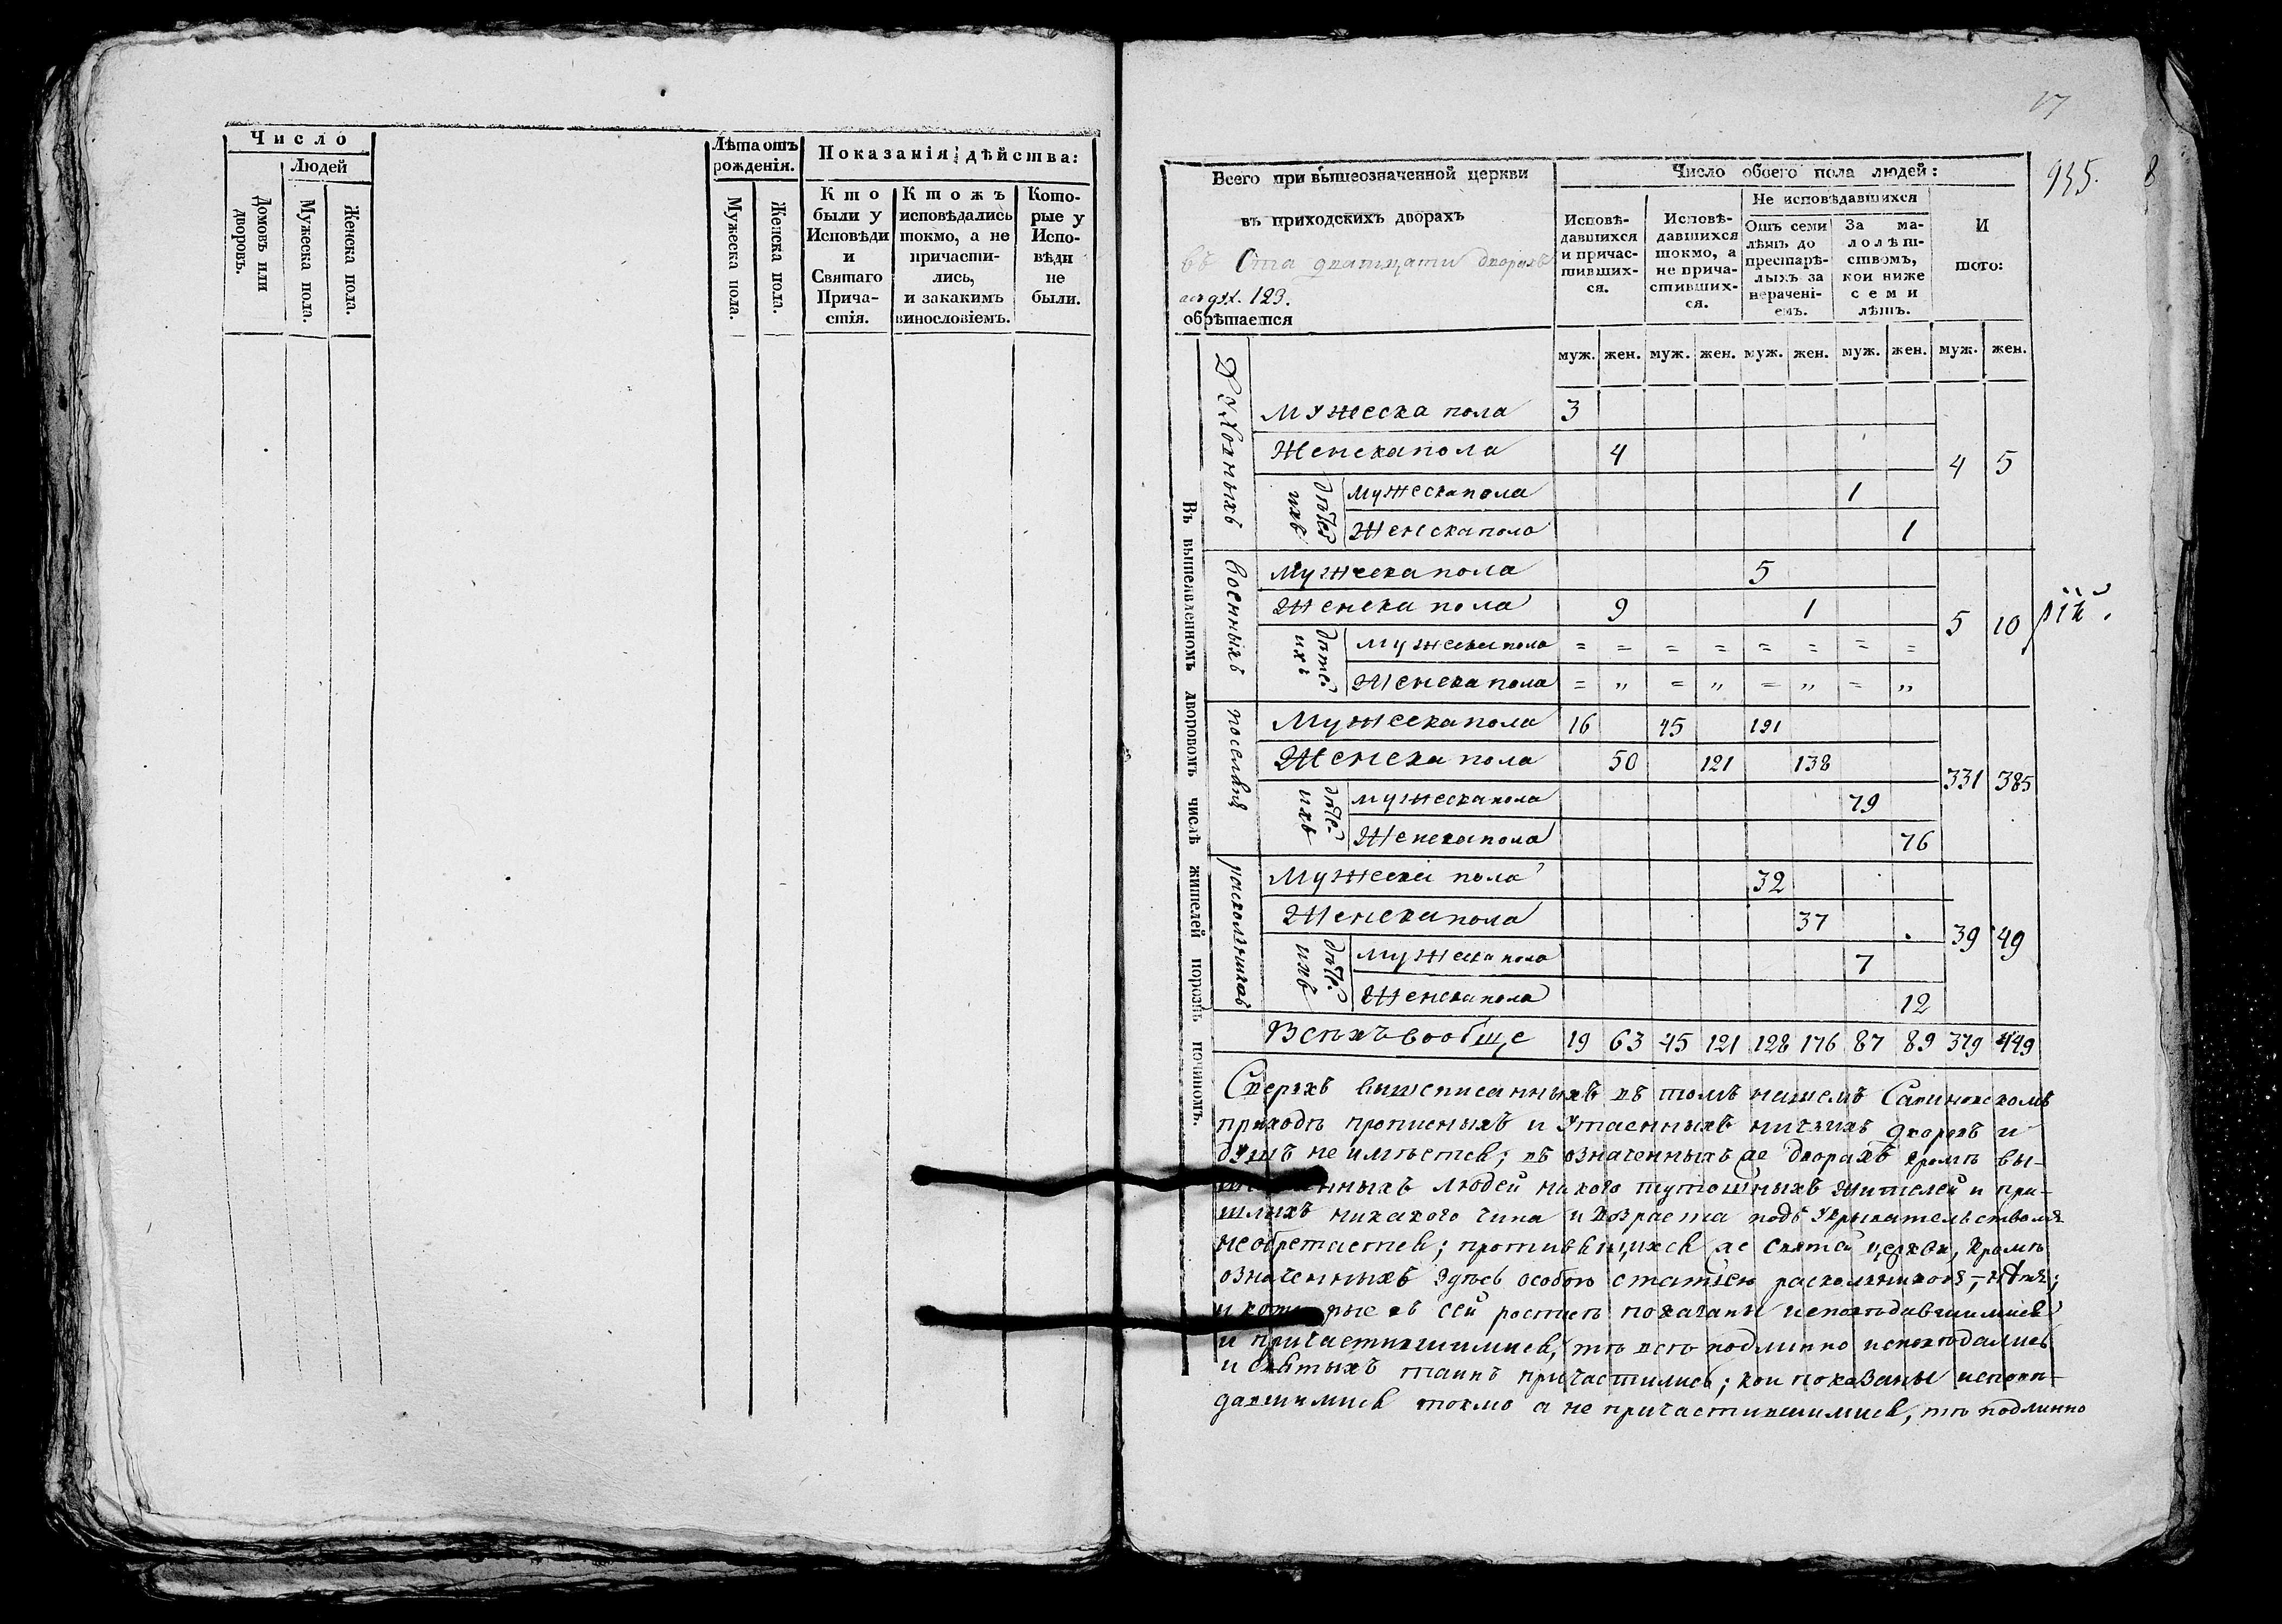 Число
Людей
Домовъ или дворовъ.
Мужеска пола.
Женска пола.
Лѣта отъ рожденія.
Мужеска пола.
Женска пола.
Показанія дѣйства:
Кто были у Исповѣди и Святаго Причастія.
Ктожъ исповѣдались токмо, а не причастились, и закакимъ винословіемъ.
Которые у Исповѣди не были.
17
935.
8
Всего при вышеозначенной церкви
въ приходскихъ дворахъ
въ Ста дватцати дворахъ
123.
обрѣтается
Число обоего пола людей:
Исповѣдавшихся и причастившихся.
Исповѣдавшихся токмо, а не причастившихся.
Не исповѣдавшихся
Отъ семи лѣтъ до престарѣлыхъ за нераченіемъ.
За малолѣтствомъ, кои ниже семи лѣтъ.
И того:
муж. жен. муж. жен. муж. жен. муж. жен. муж. жен.
Въ вышеявленномъ дворовомъ числѣ жителей порознь починомъ.
Духовныхъ
Мужеска пола 3
Женска пола 4
4 5
дѣтей ихъ
Мужеска пола 1
Женска пола 1
Военныхъ
Мужеска пола 5
Женска пола 9 1
5 10
дѣтей ихъ
Мужеска пола = = = = = = = =
Женска пола = „ = „ = „ = „
поселянъ
Мужеска пола 16 45 191
Женска пола 50 121 138
331 385
дѣтей ихъ
мужеска пола 79
Женска пола 76
раскольниковъ
Мужеска пола 32
Женска пола 37
39 49
дѣтей ихъ
Мужеска пола 7
Женска пола 12
Всѣхъ вообще 19 63 45 121 128 176 87 89 379 449
Сверхъ вышеписанныхъ въ томъ нашемъ Савиновскомъ
приходѣ прописныхъ и утаенныхъ никакихъ дворовъ и
душъ не имѣется; въ означенныхъ же дворахъ кромѣ вы-
людей никого тутошныхъ жителей и при-
шлыхъ никакого чина и возраста подъ укрывательствомъ
необретается; противящихся же святой церкви, кромѣ
означенныхъ здѣсь особою статьею раскольниковъ, - нѣтъ;
и которые въ сей росписѣ показаны исповѣдавшимися
и причастившимися, тѣ всѣ подлинно исповѣдались
и святыхъ таинъ причастились; кои показаны исповѣ-
давшимися токмо а не причастившимися, тѣ подлинно